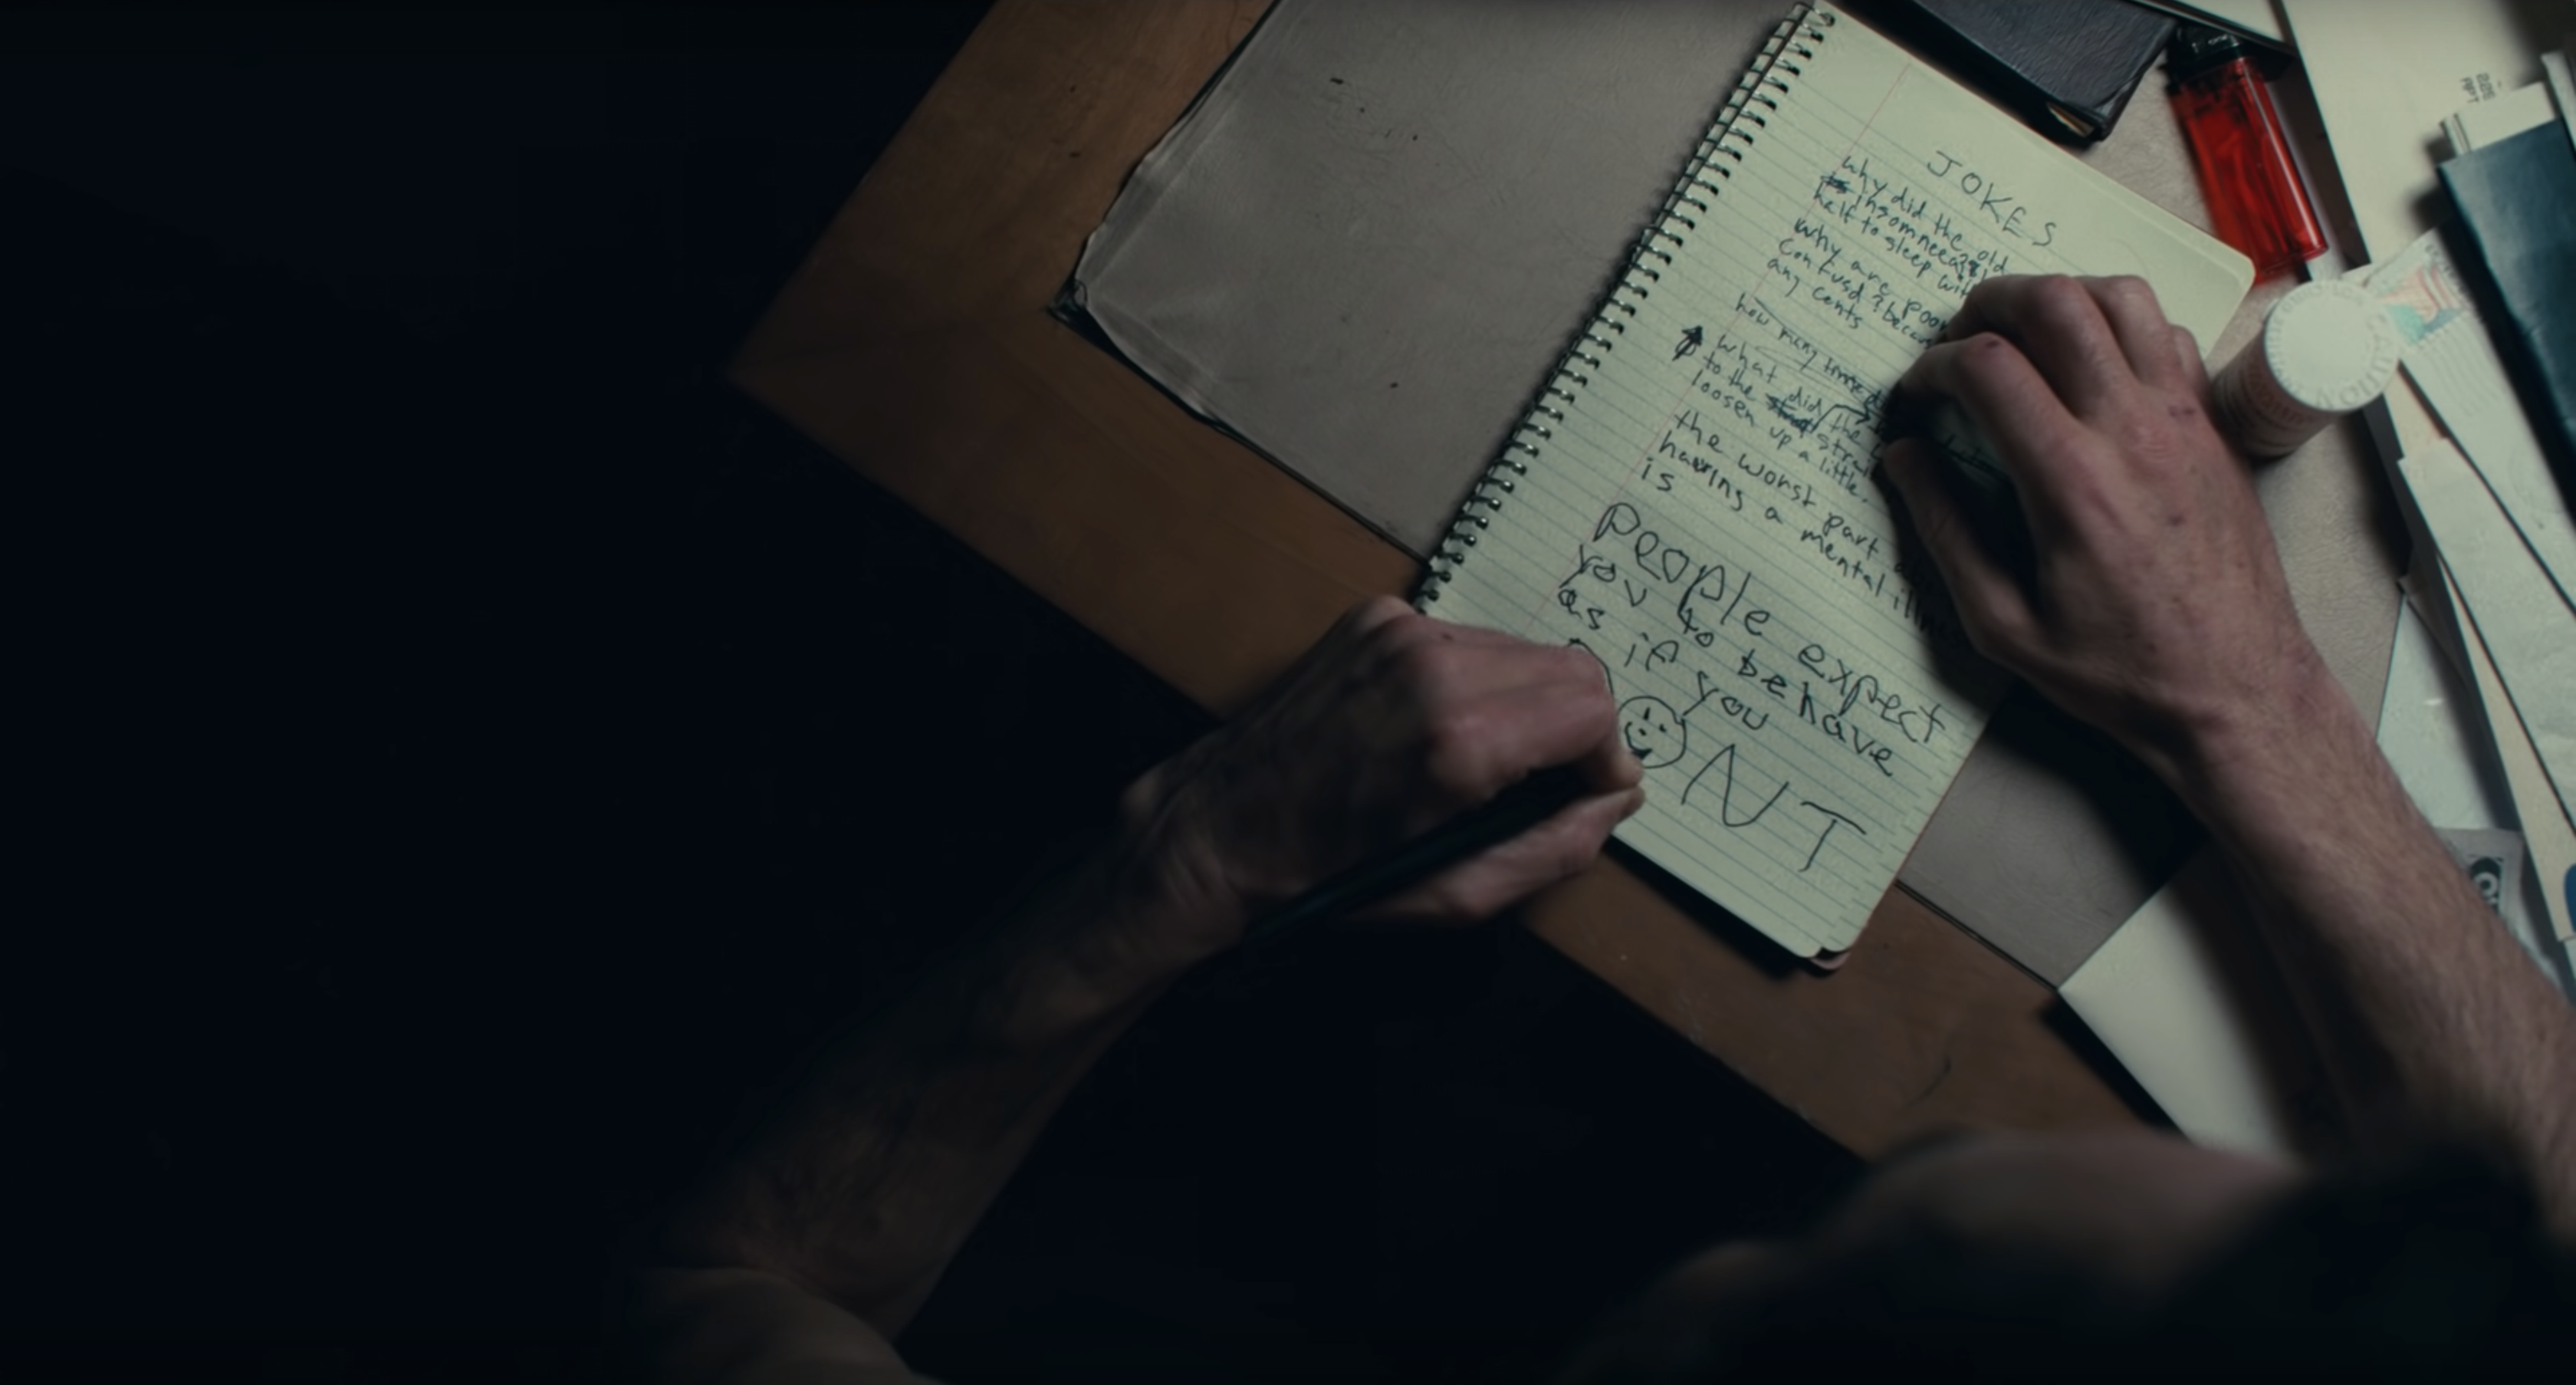 JOKES
why did the old
insomneeac
help to sleep wit
why are poor
confusd? becau
any cents
how many times
what did the
to the strai
loosen up a little.
the worst part
having a mental illness
is
people expect
you to behave
as if you
D☺ONT
CAUTION